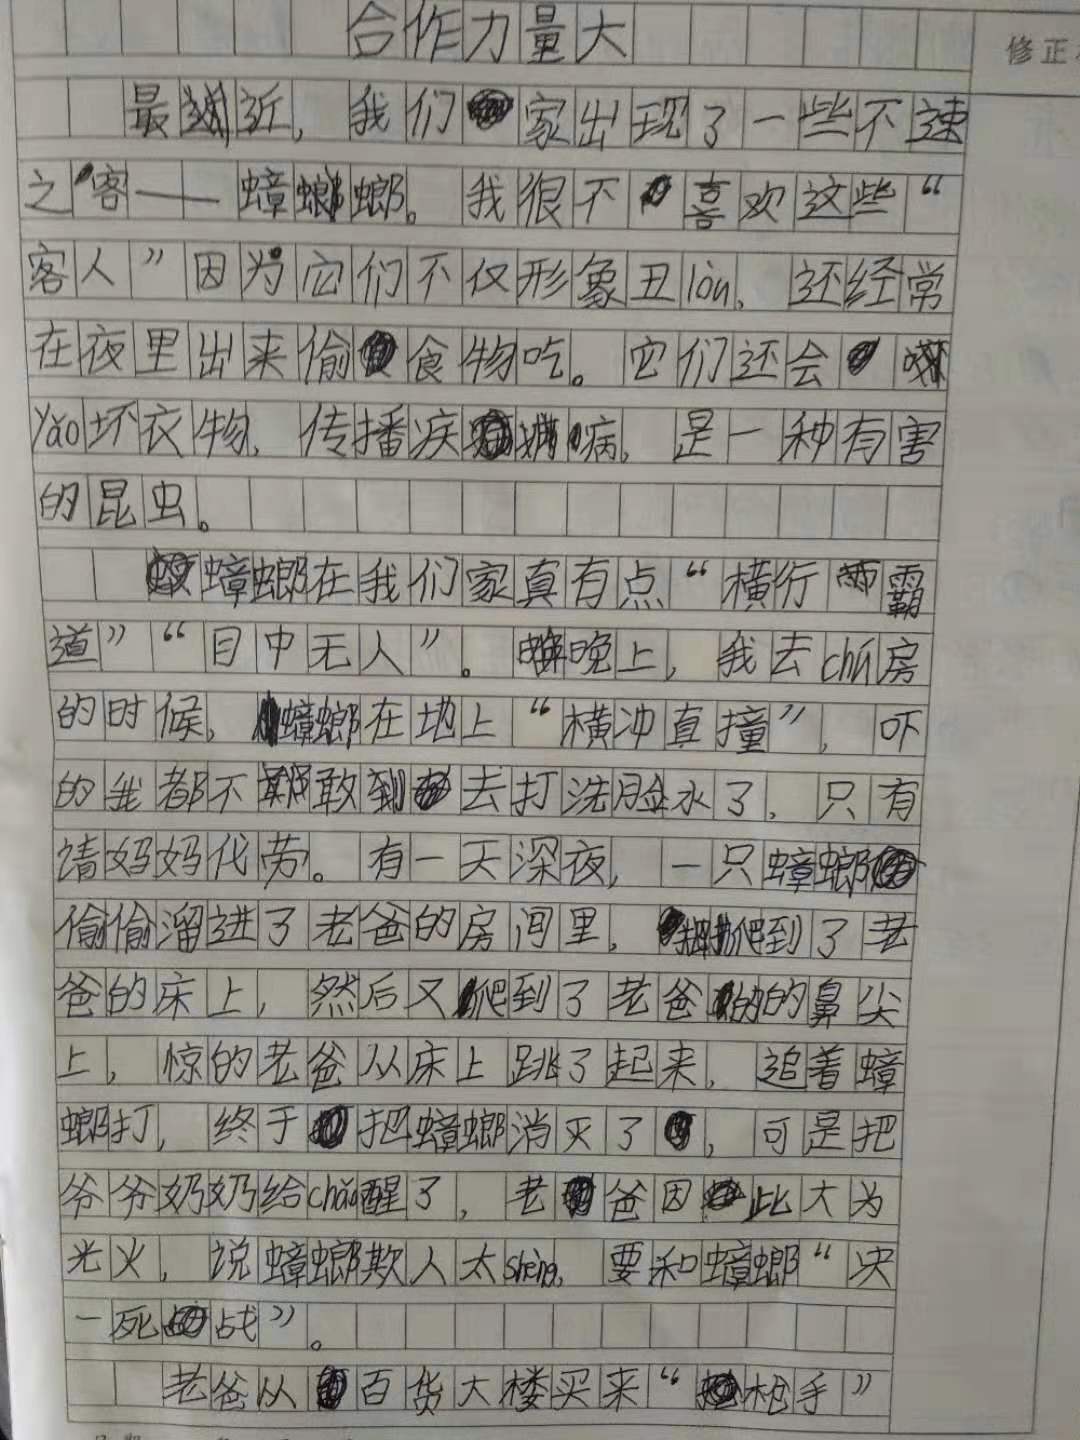 合作力量大
修正
最近，我们家出现了一些不速
之客——蟑螂。我很不喜欢这些“
客人”因为它们不仅形象丑lòu，还经常
在夜里出来偷食物吃。它们还会
yǎo坏衣物，传播疾病，是一种有害
的昆虫。
蟑螂在我们家真有点“横行霸
道”“目中无人”。晚上，我去chú房
的时候，蟑螂在地上“横冲直撞”，吓
的我都不敢去打洗脸水了，只有
请妈妈代劳。有一天深夜，一只蟑螂
偷偷溜进了老爸的房间里，爬到了老
爸的床上，然后又爬到了老爸的鼻尖
上，惊的老爸从床上跳了起来，追着蟑
螂打，终于把蟑螂消灭了，可是把
爷爷奶奶给chǎo醒了，老爸因此大为
光火，说蟑螂欺人太shèng，要和蟑螂“决
一死战”。
老爸从百货大楼买来“枪手”